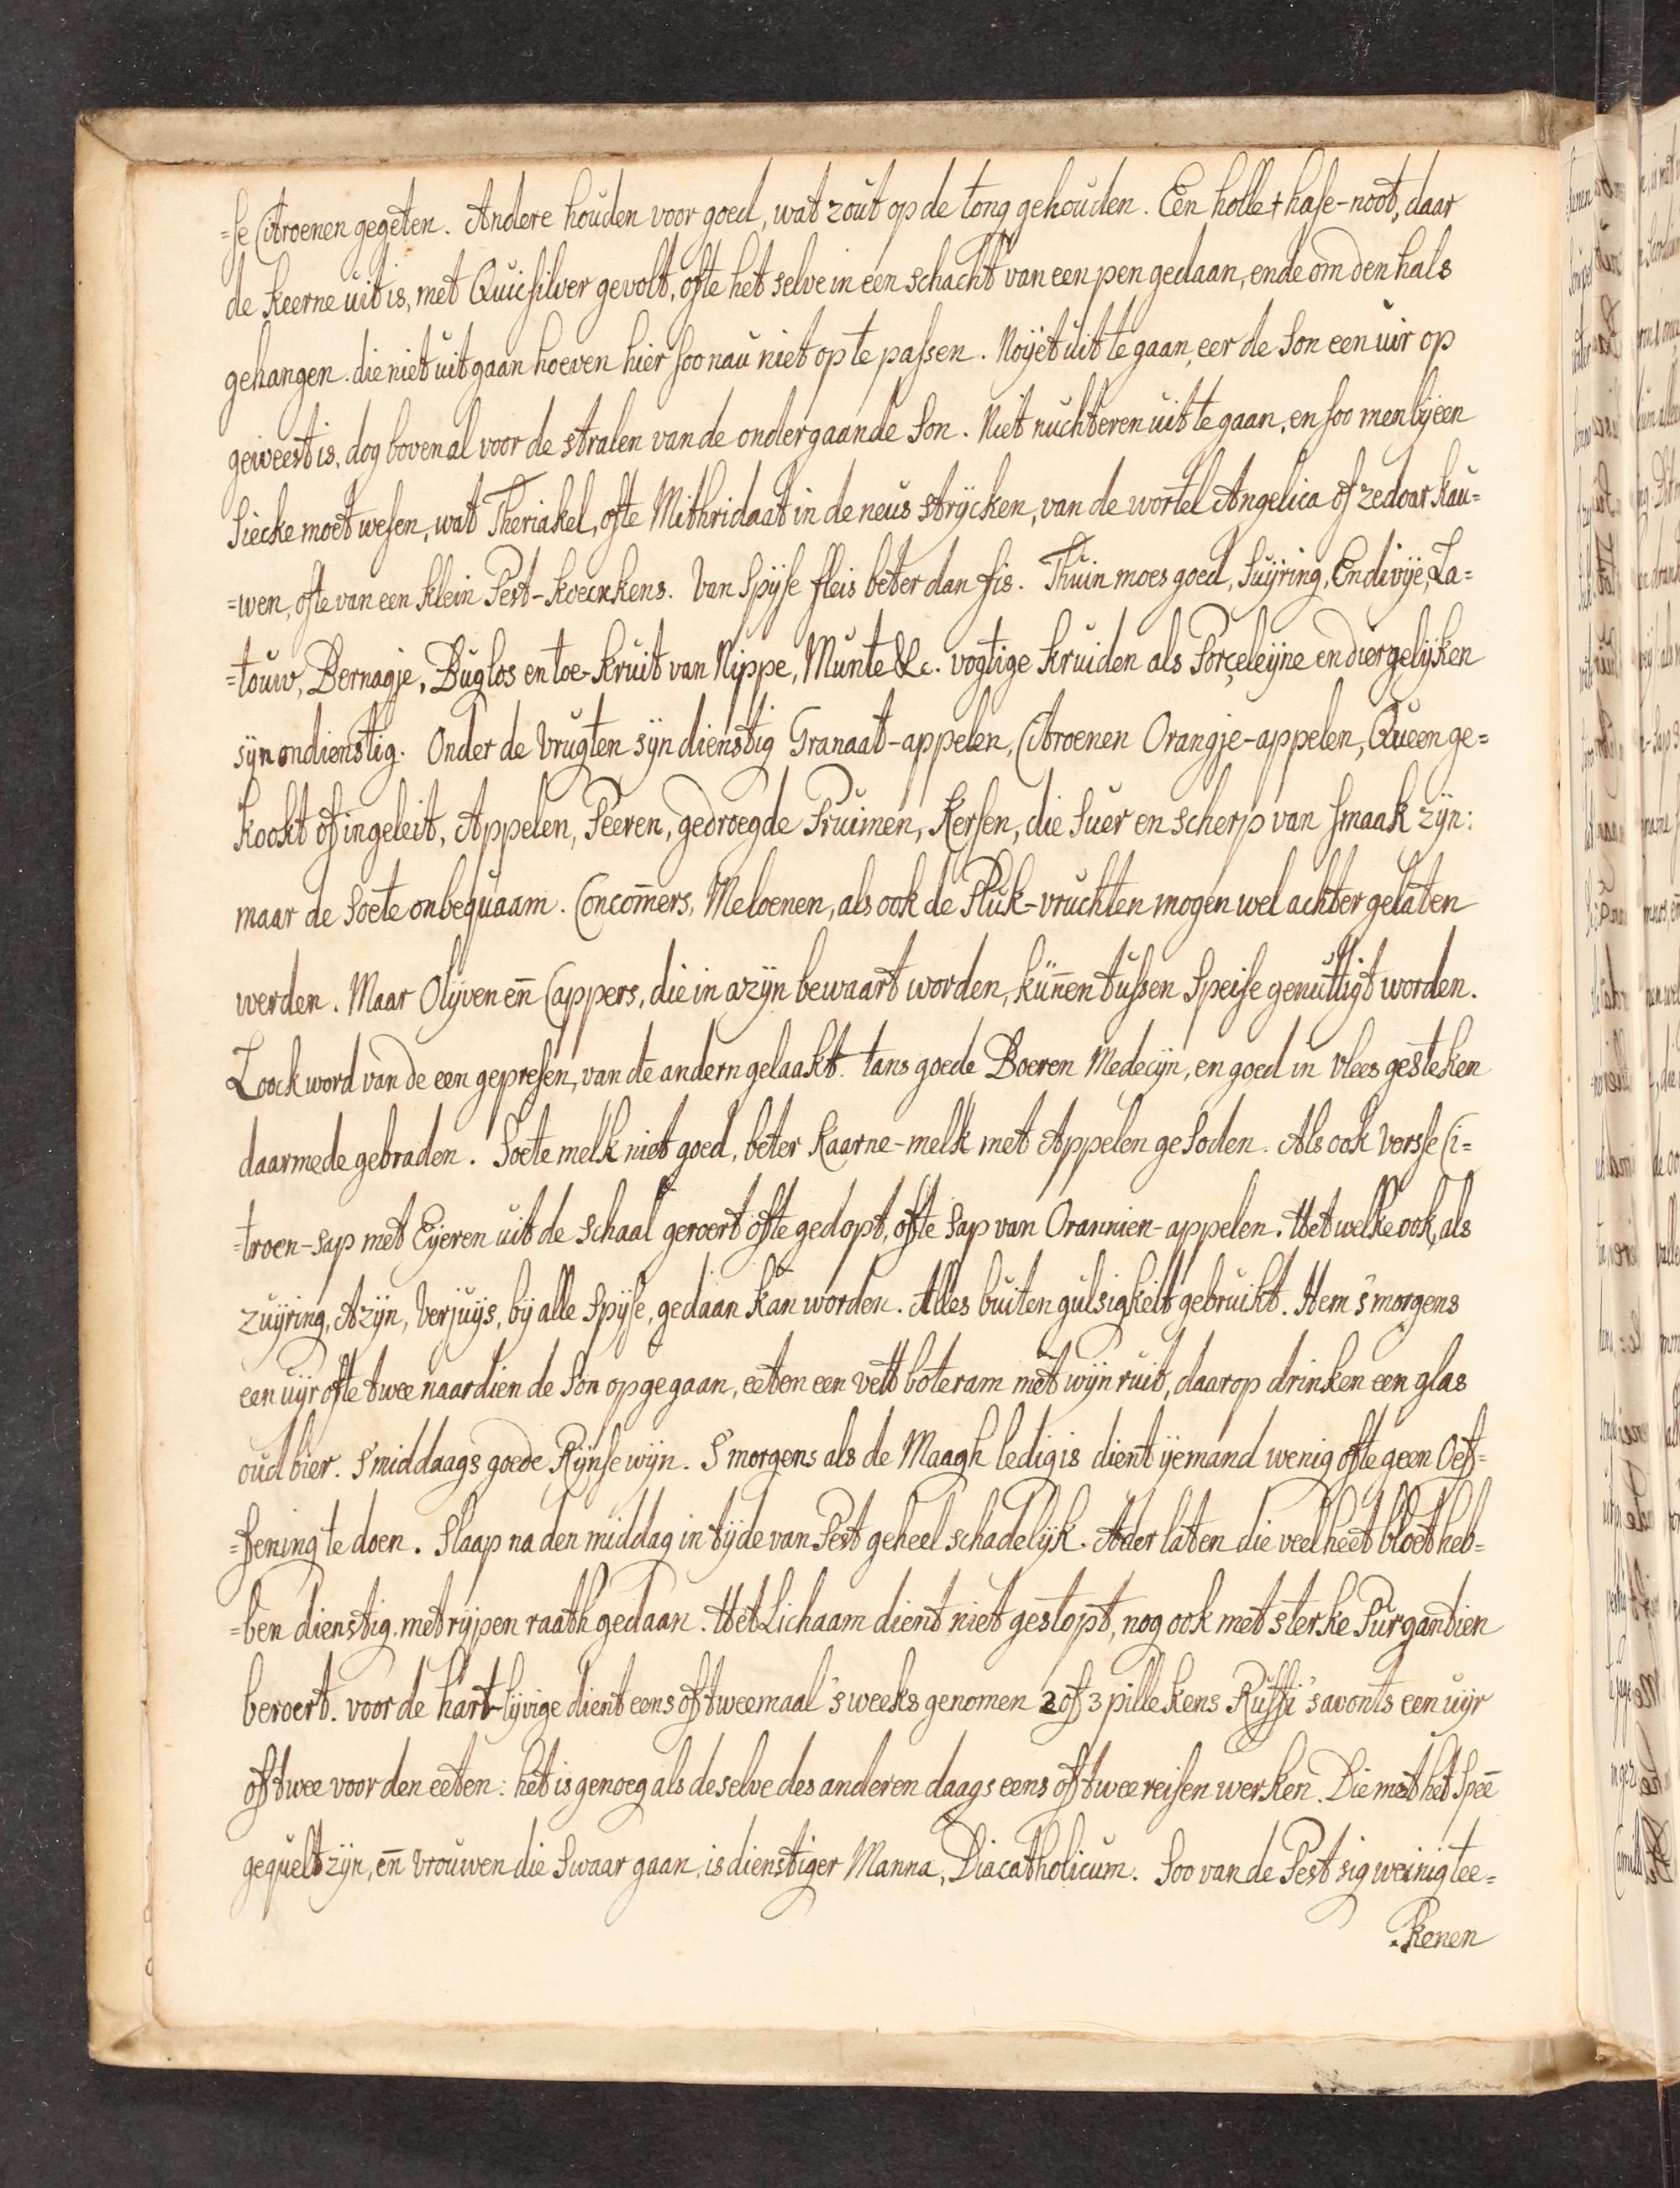 =se Citroenen gegeten. Andere houden voor goed, wat zout op de tong gehouden. Een holle + hase-noot, daar
de keerne uit is, met Quicsilver gevolt, ofte het selve in een schacht van een pen gedaan, ende om den hals
gehangen. die niet uit gaan hoeven hier soo nau niet op te passen. Noijet uit te gaan, eer de Son een uir op
geweest is, dog boven al voor de stralen van de ondergaande Son. Niet nuchteren uit te gaan, en soo men bij een
Siecke moet wesen, wat Theriakel, ofte Mithridaat in de neus strijcken, van de wortel Angelica of zedoar kau=
=wen, ofte van een klein Pest-koecxkens. Van Spijse fleis beter dan fis. Thuin moes goed, Suijring, Endivije, La=
=touw, Bernagje, Buglos en toe-kruit van Nippe, Munte &c. vogtige kruiden als Porçeleijne en diergelijken
sijn ondienstig. Onder de Vrugten sijn dienstig Granaat-appelen, Citroenen Orangje-appelen, Queen ge=
kookt of ingeleit, Appelen, Peeren, gedroegde Pruimen, Kersen, die Suer en scherp van smaak zijn:
maar de Soete onbequaam. Concom̄ers, Meloenen, als ook de Pluk-vruchten mogen wel achter gelaten
werden. Maar Olijven en̄ Cappers, die in azijn bewaart worden, kun̄en tussen Speise genuttigt worden.
Loock word van de een gepresen, van de andern gelaakt. tans goede Boeren Medecijn, en goed in vlees gesteken
daarmede gebraden. Soete melk niet goed, beter Kaarne-melk met Appelen gesoden. Als ook versse Ci=
=troen-sap met Eijeren uit de schaal geroert ofte gedopt, ofte sap van Orannien-appelen. Het welke ook, als
zuijring, Azijn, Verjuijs, bij alle Spijse, gedaan kan worden. Alles buiten gulsigkeit gebruikt. Item s'morgens
een uijr ofte twee naardien de Son opgegaan, eeten een vett boteram met wijnruit, daar op drinken een glas
oud bier. S'middaags goede Rijnse wijn. S'morgens als de Maagh ledig is dient ijemand wenig ofte geen Oef=
=fening te doen. Slaap na den middag in tijde van Pest geheel schadelijk. Ader laten die veel heet bloet heb=
=ben dienstig, met rijpen raath gedaan. Het Lichaam dient niet gestopt, nog ook met sterke Purgantien
beroert. voor de hart-lijvige dient eens oft tweemaal 's weeks genomen 2 of 3 pillekens Ruffi 's avonts een uijr
oft twee voor den eeten: het is genoeg als deselve des anderen daags eens oft twee reisen werken. Die met het speē
gequelt zijn, en̄ Vrouwen die swaar gaan, is dienstiger Manna, Diacatholicum. Soo van de Pest sig weinig tee=
=kenen